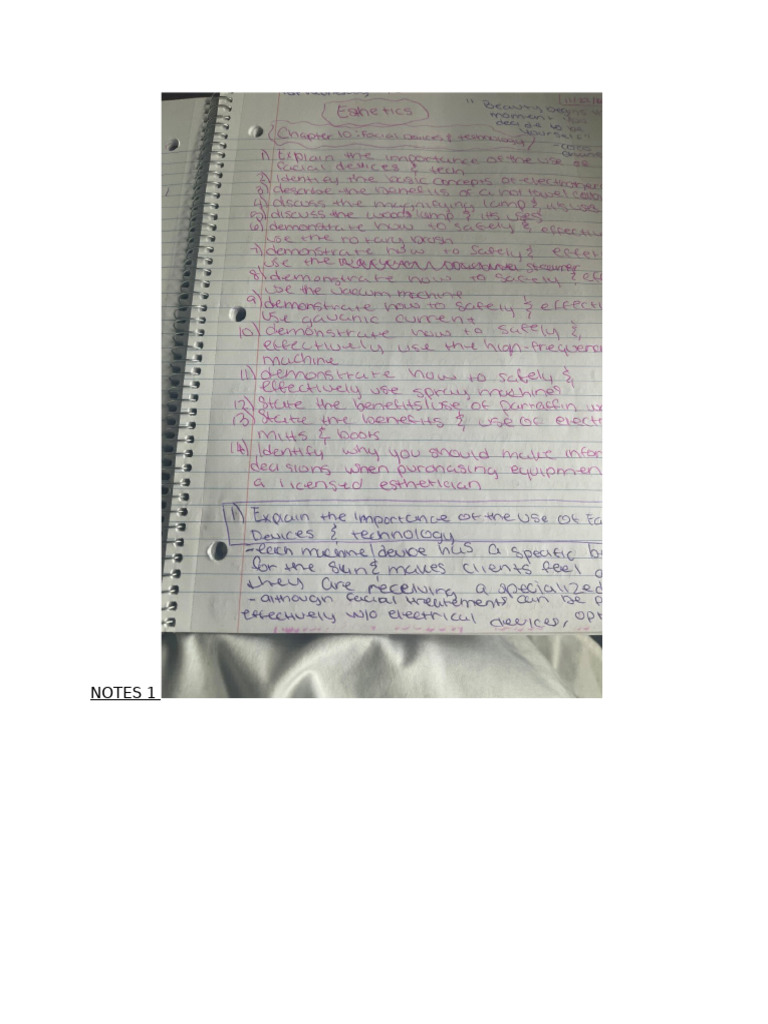 Esthetics
"Beauty begins
moment you
decide to be
yourself"
Chapter 10: Facial Devices & technology
1) Explain the importance of the use of
facial devices & tech
2) Identify the basic concepts of
3) describe the benefits of a hot towel
4) discuss the magnifying lamp & its uses
5) discuss the woods lamp & its uses
6) demonstrate how to safely &
use the rotary brush
7) demonstrate how to safely &
use the steamer
8) demonstrate how to safely &
use the vacuum machine
9) demonstrate how to safely &
use galvanic current
10) demonstrate how to safely &
effectively use the high-frequen
machine
11) demonstrate how to safely &
effectively use spray machines
12) State the benefits/use of parraffin
13) State the benefits & use of elect
mitts & boots
14) Identify why you should make infor
decisions when purchasing equipmen
a licensed esthetician
1) Explain the importance of the use of Fa
Devices & technology
- each machine/device has a specific b
for the skin & makes clients feel
they are receiving a specialized
- although facial treatements can be p
effectively w/o electrical devices, opt
NOTES 1